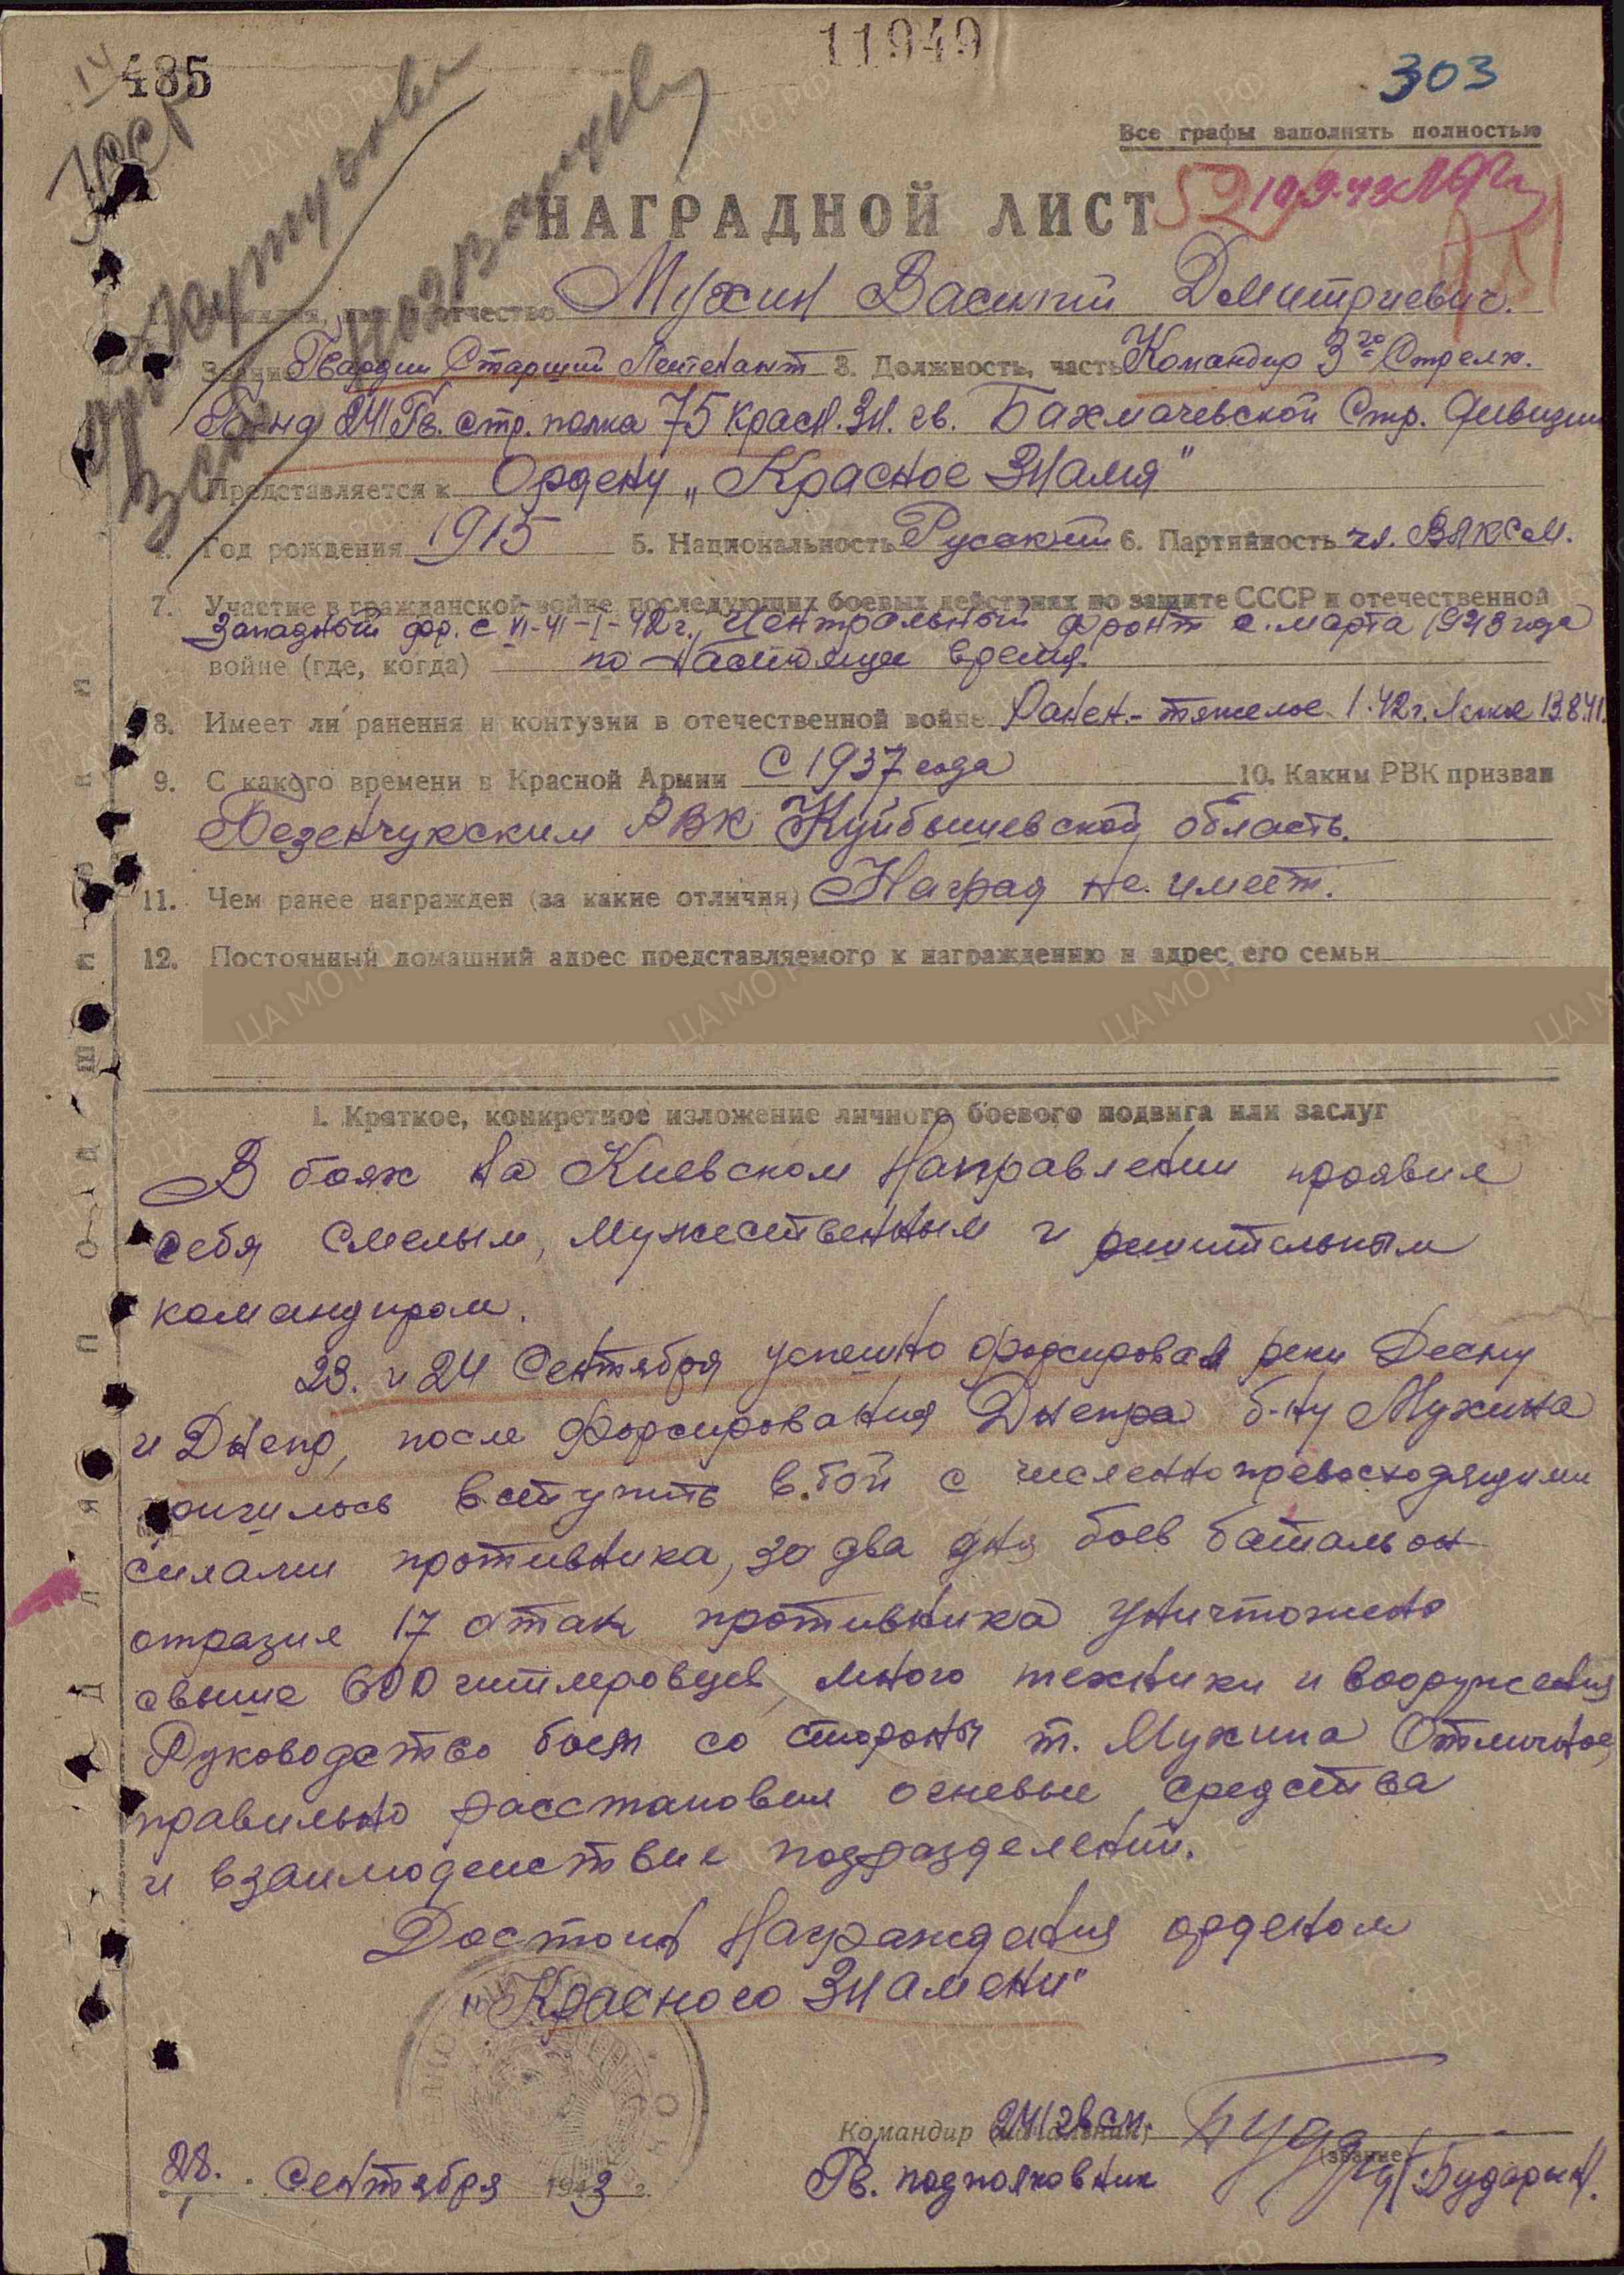 11949
485
303
Все графы заполнять полностью
НАГРАДНОЙ ЛИСТ
Мухин Василий Дмитриевич.
Звание Гвардии Старший Лейтенант 3. Должность, часть Командир 3го Стрелк.
Б-на 241 Гв. стр. полка 75 Красн. Зн. гв. Бахмачевской Стр. Дивизии
Представляется к Ордену „Красное Знамя"
4. Год рождения 1915 5. Национальность Русский 6. Партийность чл. ВЛКСМ.
7. Участие в гражданской войне последующих боевых действиях по защите СССР и отечественной
Западный фр. с VI-41-I-42г., Центральный фронт с марта 1943 года
войне (где, когда) по настоящее время.
8. Имеет ли ранения и контузии в отечественной войне Ранен - тяжелое 1.42г. Легкое 13.8.41.
9. С какого времени в Красной Армии С 1937 года 10. Каким РВК призван
Безенчукским РВК Куйбышевской область.
11. Чем ранее награжден (за какие отличия) Наград не имеет.
12. Постоянный домашний адрес представляемого к награждению и адрес его семьи
1. Краткое, конкретное изложение личного боевого подвига или заслуг
В боях на Киевском Направлении проявил
себя Смелым, Мужественным и решительным
командиром.
23. и 24 Сентября успешно форсировал реки Десну
и Днепр, после форсирования Днепра б-ну Мухина
пришлось вступить в бой с численнопревосходящими
силами противника, за два дня боев батальон
отразил 17 Атак противника уничтожено
свыше 600 гитлеровцев, много техники и вооружения
Руководство боем со стороны т. Мухина Отличное
правильно расстановил огневые средства
и взаимодействие подразделений.
Достоин Награждения орденом
„Красного Знамени"
Командир 241 гв сп.
(звание)
28. Сентября 1943 г. Гв. подполковник /Бударин/.